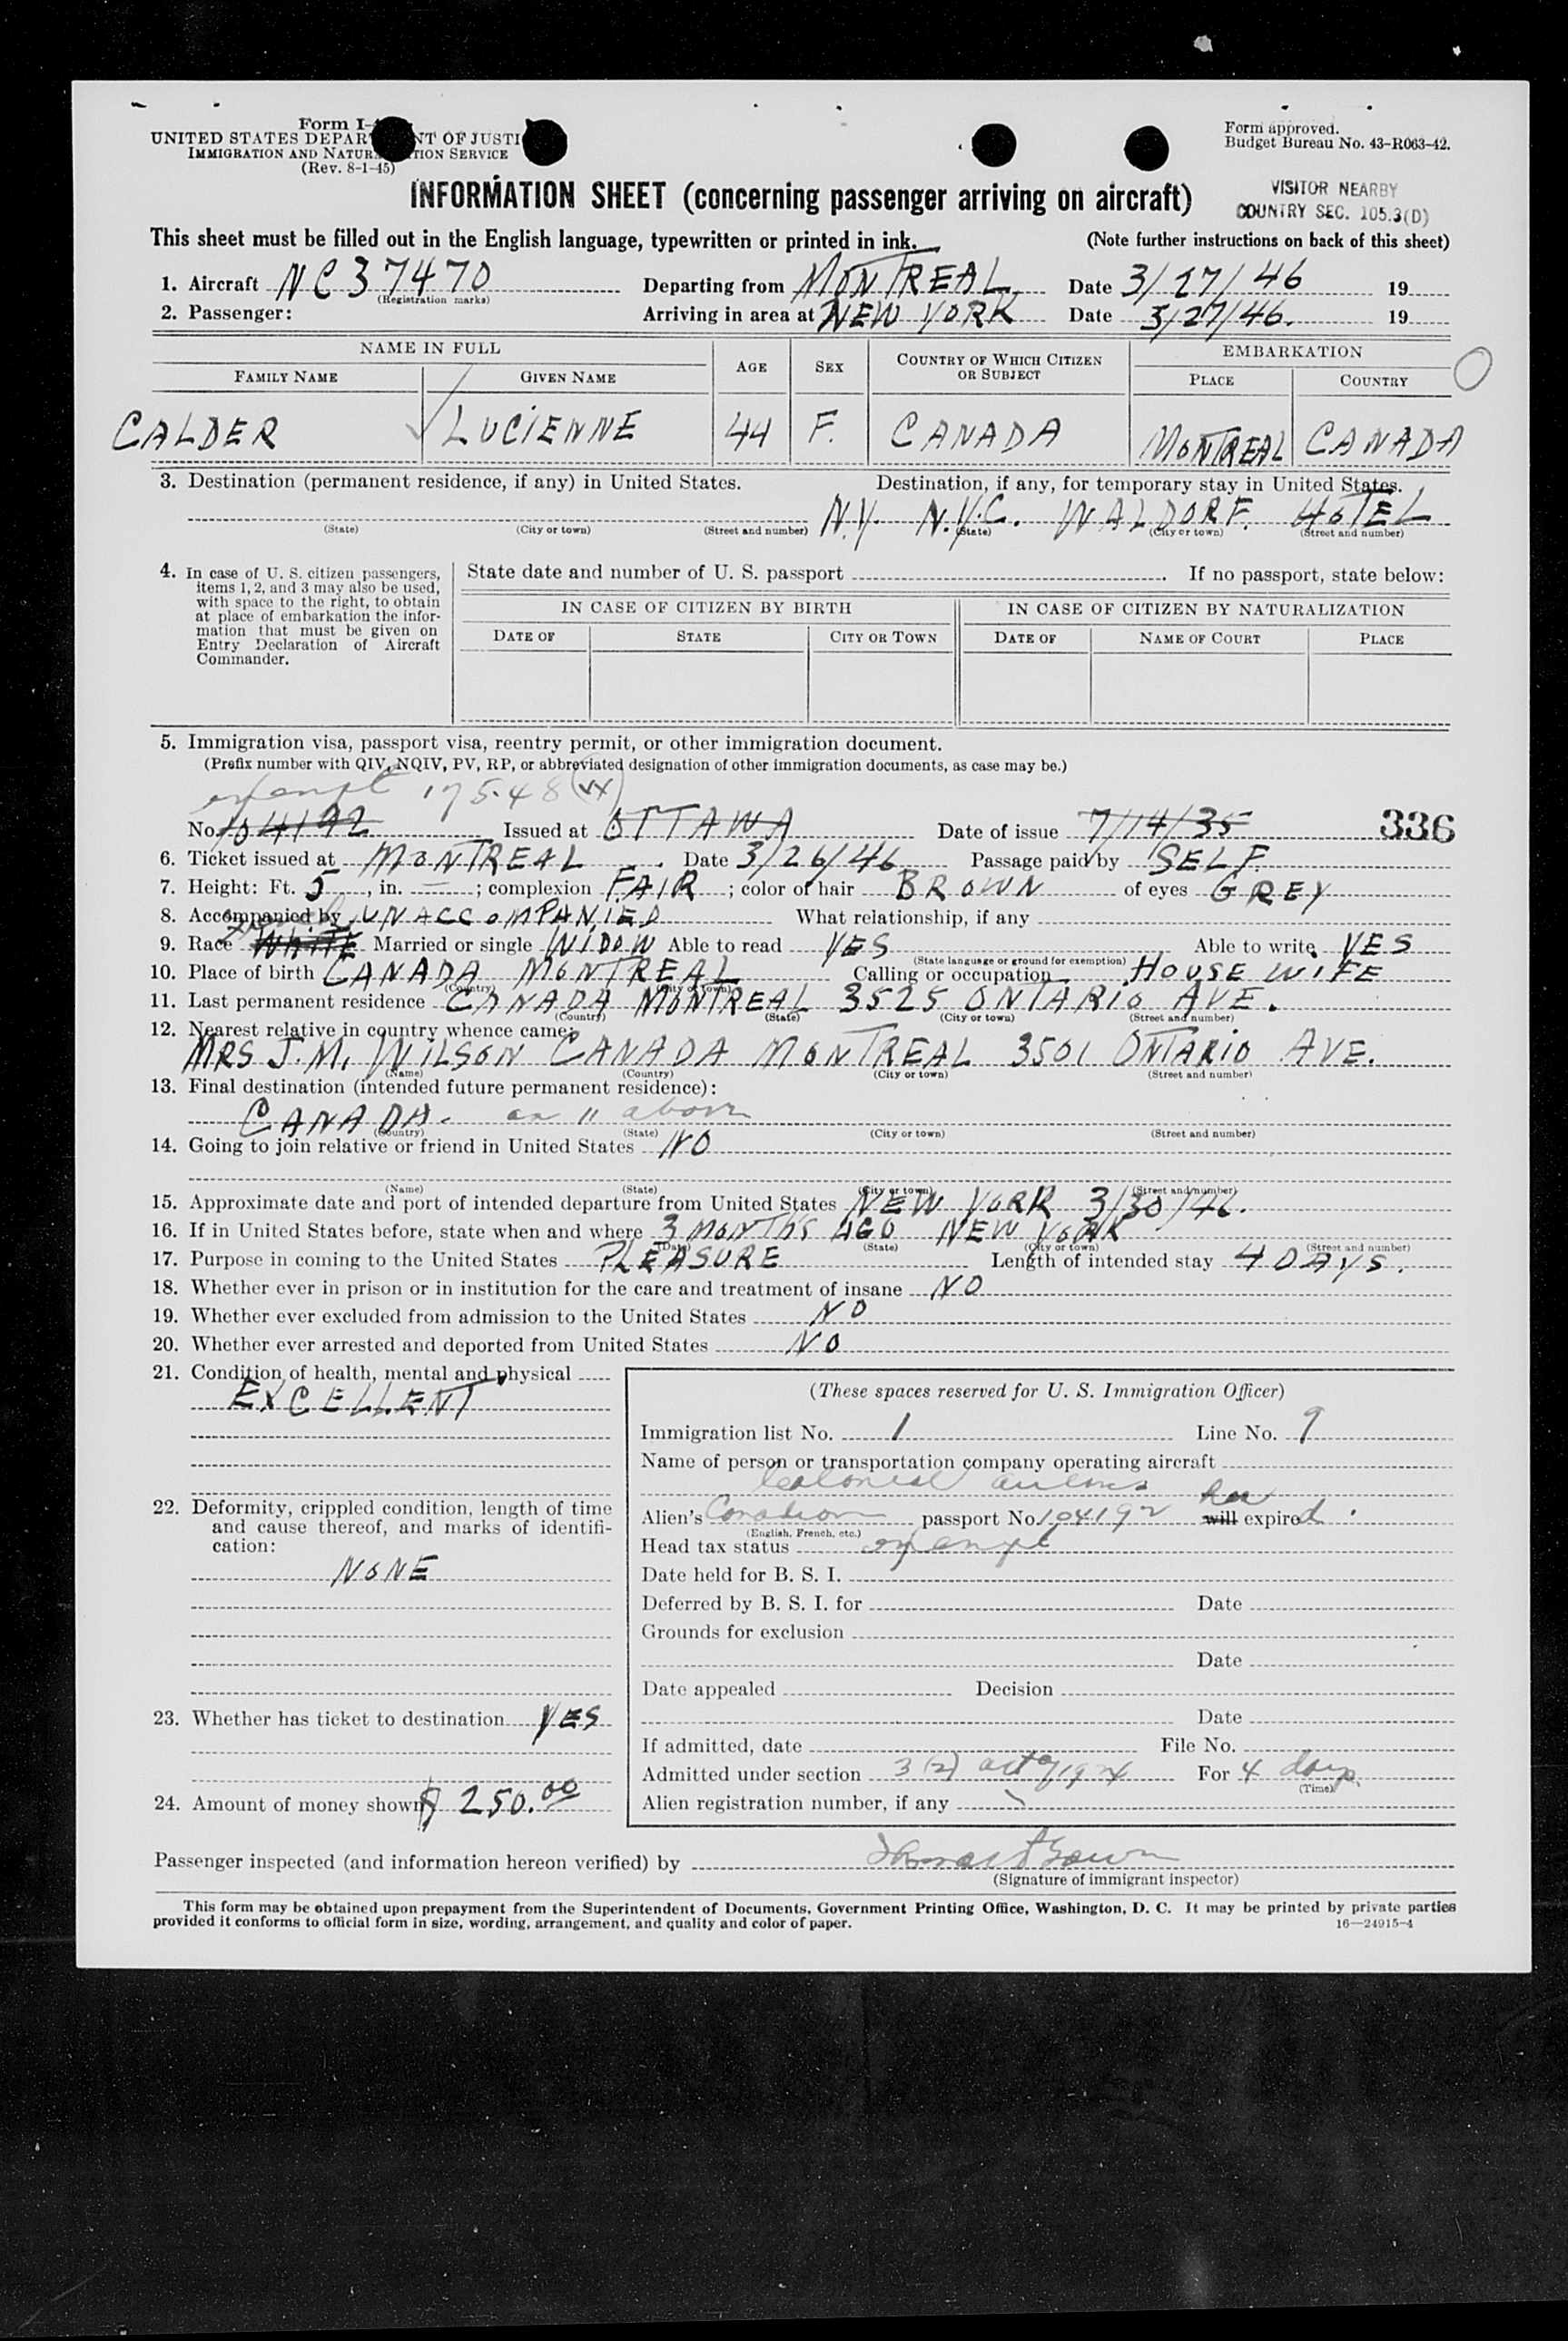 Form I-
UNITED STATES DEPARTMENT OF JUSTICE
IMMIGRATION AND NATURALIZATION SERVICE
(Rev. 8-1-45)
Form approved.
Budget Bureau No. 43-R063-42.
INFORMATION SHEET (concerning passenger arriving on aircraft)
VISITOR NEARBY
COUNTRY SEC. 105.3(D)
This sheet must be filled out in the English language, typewritten or printed in ink. (Note further instructions on back of this sheet)
1. Aircraft NC37470 Departing from MONTREAL Date 3/27/46 19
(Registration marks)
2. Passenger: Arriving in area at NEW YORK Date 3/27/46. 19
NAME IN FULL AGE SEX COUNTRY OF WHICH CITIZEN OR SUBJECT EMBARKATION
FAMILY NAME GIVEN NAME PLACE COUNTRY
CALDER LUCIENNE 44 F. CANADA MONTREAL CANADA
3. Destination (permanent residence, if any) in United States. Destination, if any, for temporary stay in United States.
N.Y. N.Y.C. WALDORF. HOTEL
(State) (City or town) (Street and number) (State) (City or town) (Street and number)
4. In case of U. S. citizen passengers, items 1, 2, and 3 may also be used, with space to the right, to obtain at place of embarkation the information that must be given on Entry Declaration of Aircraft Commander.
State date and number of U. S. passport . If no passport, state below:
IN CASE OF CITIZEN BY BIRTH IN CASE OF CITIZEN BY NATURALIZATION
DATE OF STATE CITY OR TOWN DATE OF NAME OF COURT PLACE
5. Immigration visa, passport visa, reentry permit, or other immigration document.
(Prefix number with QIV, NQIV, PV, RP, or abbreviated designation of other immigration documents, as case may be.)
exempt 175.48
No. 104192 Issued at OTTAWA Date of issue 7/14/35 336
6. Ticket issued at MONTREAL. Date 3/26/46 Passage paid by SELF.
7. Height: Ft. 5, in. —; complexion FAIR; color of hair BROWN of eyes GREY
8. Accompanied by UNACCOMPANIED What relationship, if any
9. Race WHITE Married or single WIDOW Able to read YES Able to write YES
(State language or ground for exemption)
10. Place of birth CANADA MONTREAL Calling or occupation HOUSE WIFE
(Country) (City or town)
11. Last permanent residence CANADA MONTREAL 3525 ONTARIO AVE.
(Country) (State) (City or town) (Street and number)
12. Nearest relative in country whence came:
MRS J.M. WILSON CANADA MONTREAL 3501 ONTARIO AVE.
(Name) (Country) (City or town) (Street and number)
13. Final destination (intended future permanent residence):
CANADA. as " above
(Country) (State) (City or town) (Street and number)
14. Going to join relative or friend in United States NO
(Name) (State) (City or town) (Street and number)
15. Approximate date and port of intended departure from United States NEW YORK 3/30/46.
16. If in United States before, state when and where 3 MONTHS AGO NEW YORK
(Date) (State) (City or town) (Street and number)
17. Purpose in coming to the United States PLEASURE Length of intended stay 4 DAYS.
18. Whether ever in prison or in institution for the care and treatment of insane NO
19. Whether ever excluded from admission to the United States NO
20. Whether ever arrested and deported from United States NO
21. Condition of health, mental and physical
EXCELLENT
22. Deformity, crippled condition, length of time and cause thereof, and marks of identification:
NONE
23. Whether has ticket to destination YES
24. Amount of money shown $ 250.00
(These spaces reserved for U. S. Immigration Officer)
Immigration list No. 1 Line No. 9
Name of person or transportation company operating aircraft
Colonial airlines
Alien's Canadian passport No. 104192 will has expired.
(English, French, etc.)
Head tax status exempt
Date held for B. S. I.
Deferred by B. S. I. for Date
Grounds for exclusion
Date
Date appealed Decision
Date
If admitted, date File No.
Admitted under section 3 (2) act of 1924 For 4 days
(Time)
Alien registration number, if any
Passenger inspected (and information hereon verified) by
(Signature of immigrant inspector)
This form may be obtained upon prepayment from the Superintendent of Documents, Government Printing Office, Washington, D. C. It may be printed by private parties
provided it conforms to official form in size, wording, arrangement, and quality and color of paper. 16—24915-4